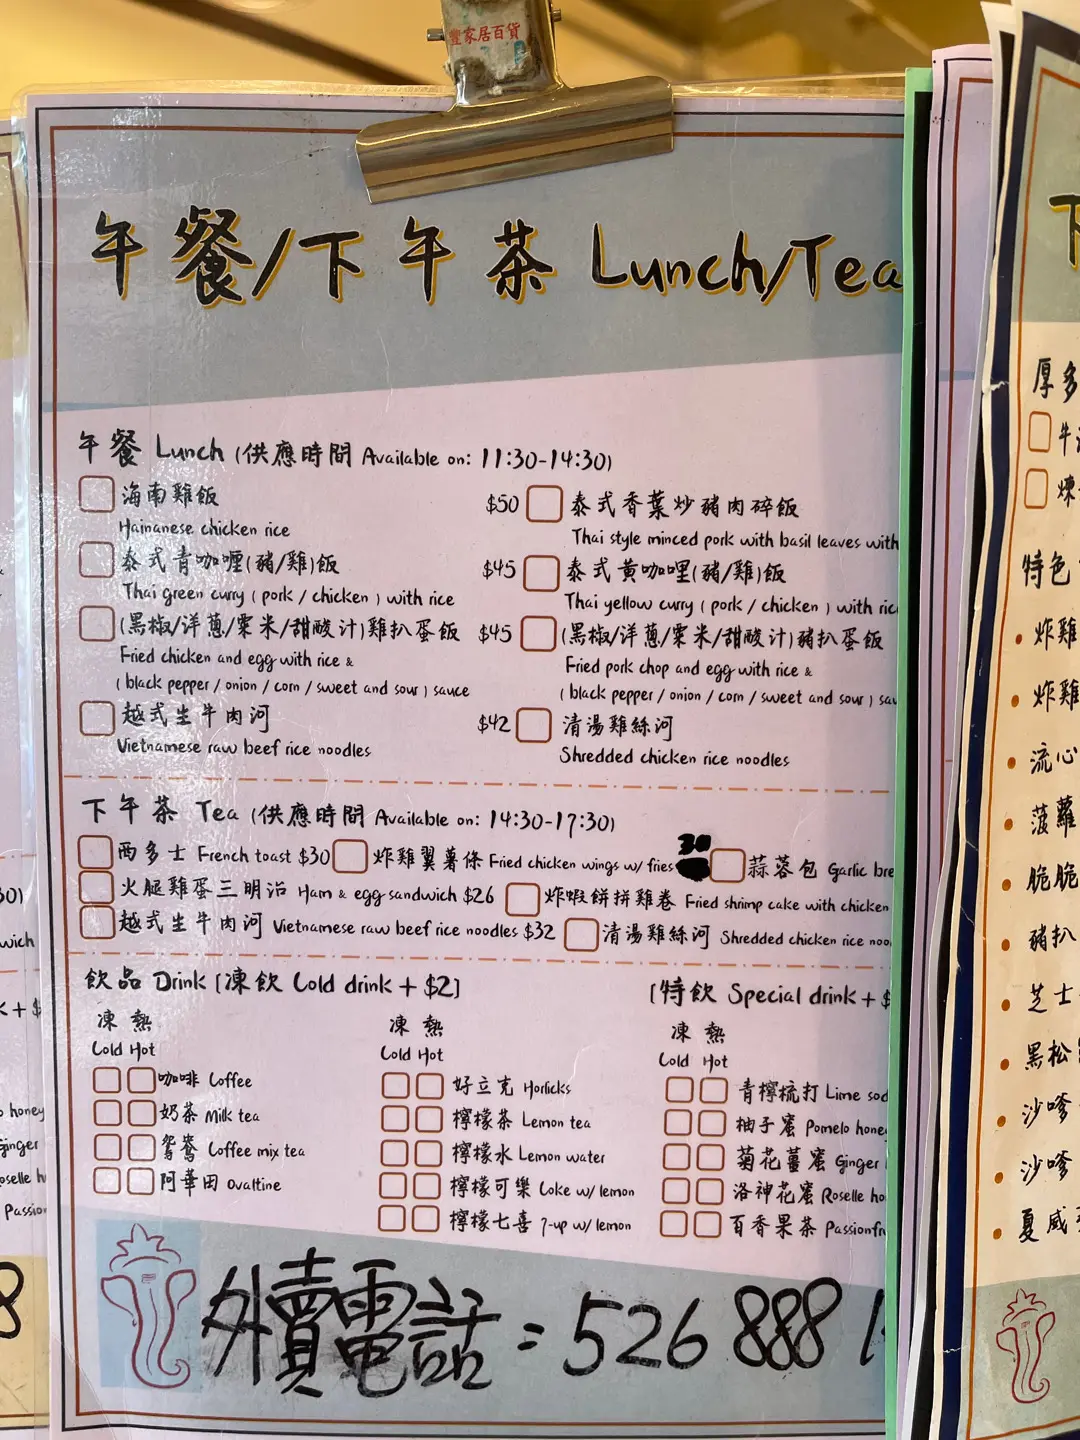 豐家居百貨
午餐/下午茶 Lunch/Tea
午餐 Lunch (供應時間 Available on: 11:30-14:30)
海南雞飯 $50
Hainanese chicken rice
泰式香葉炒豬肉碎飯
Thai style minced pork with basil leaves with
泰式青咖喱(豬/雞)飯 $45
Thai green curry ( pork / chicken ) with rice
泰式黃咖哩(豬/雞)飯
Thai yellow curry ( pork / chicken ) with
(黑椒/洋蔥/粟米/甜酸汁)雞扒蛋飯 $45
Fried chicken and egg with rice &
( black pepper / onion / corn / sweet and sour ) sauce
(黑椒/洋蔥/粟米/甜酸汁)豬扒蛋飯
Fried pork chop and egg with rice &
( black pepper / onion / corn / sweet and sour )
越式生牛肉河 $42
Vietnamese raw beef rice noodles
清湯雞絲河
Shredded chicken rice noodles
下午茶 Tea (供應時間 Available on: 14:30-17:30)
西多士 French toast $30 炸雞翼薯條 Fried chicken wings w/ fries 30 蒜蓉包 Garlic
火腿雞蛋三明治 Ham & egg sandwich $26 炸蝦餅拼雞卷 Fried shrimp cake with chicken
越式生牛肉河 Vietnamese raw beef rice noodles $32 清湯雞絲河 Shredded chicken rice
飲品 Drink [凍飲 Cold drink + $2] [特飲 Special drink +
凍 熱
Cold Hot
咖啡 Coffee
奶茶 Milk tea
鴛鴦 Coffee mix tea
阿華田 Ovaltine
凍 熱
Cold Hot
好立克 Horlicks
檸檬茶 Lemon tea
檸檬水 Lemon water
檸檬可樂 Coke w/ lemon
檸檬七喜 7-up w/ lemon
凍 熱
Cold Hot
青檸梳打 Lime
柚子蜜 Pomelo
菊花薑蜜 Ginger
洛神花蜜 Roselle
百香果茶
外賣電話 = 526 888
厚多
特色
炸雞
炸雞
流心
菠蘿
脆脆
豬扒
芝士
黑松
沙嗲
沙嗲
夏威